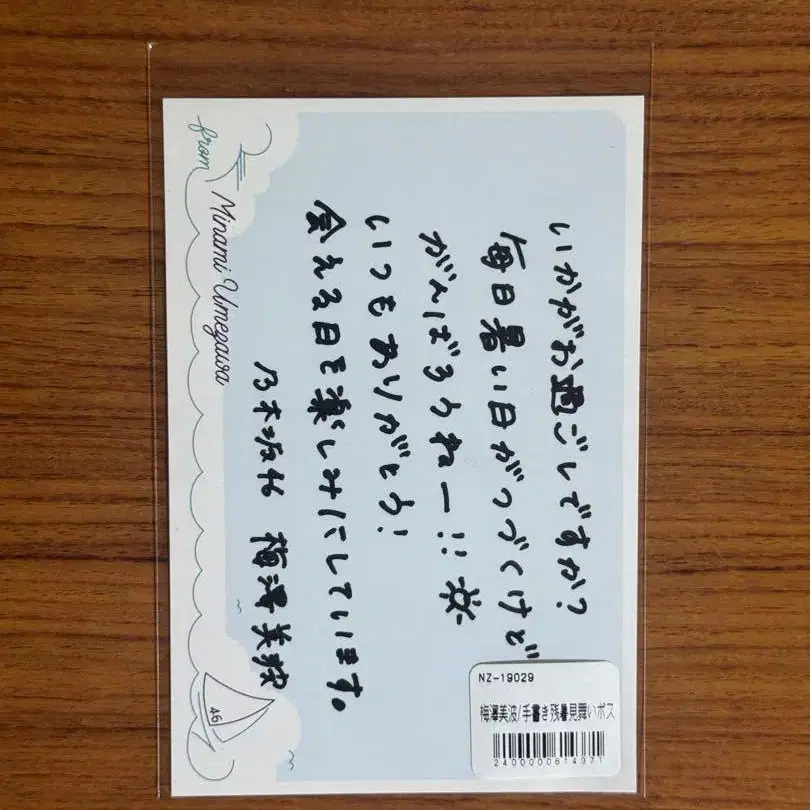 いかがお過ごしですか?
毎日暑い日がつづくけど
がんばろうねー!!
いつもありがとう!
会える日を楽しみにしています。
乃木坂46 梅澤美波
from
Minami Umezawa
46
NZ-19029
梅澤美波/手書き残暑見舞いポス
2400000614371